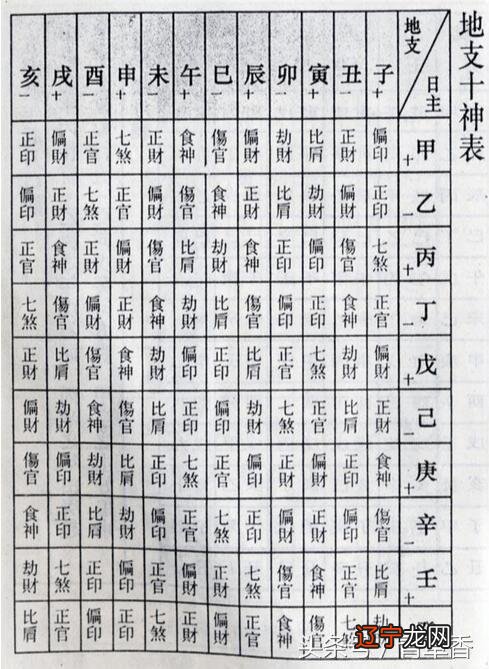 地支十神表
地支 日主 子+ 丑一 寅+ 卯一 辰+ 巳一 午+ 未一 申+ 酉一 戌+ 亥一
甲+ 偏印 正財 比肩 劫財 偏財 傷官 食神 正財 七煞 正官 偏財 正印
乙一 正印 偏財 劫財 比肩 正財 食神 傷官 偏財 正官 七煞 正財 偏印
丙+ 七煞 傷官 偏印 正印 食神 劫財 比肩 傷官 偏財 正財 食神 正官
丁一 正官 食神 正印 偏印 傷官 比肩 劫財 食神 正財 偏財 傷官 七煞
戊+ 偏財 劫財 七煞 正官 比肩 正印 偏印 劫財 食神 傷官 比肩 正財
己一 正財 比肩 正官 七煞 劫財 偏印 正印 比肩 傷官 食神 劫財 偏財
庚+ 食神 正印 偏財 正財 偏印 正官 七煞 正印 比肩 劫財 偏印 傷官
辛一 傷官 偏印 正財 偏財 正印 七煞 正官 偏印 劫財 比肩 正印 食神
壬+ 比肩 正官 食神 傷官 七煞 正財 偏財 正官 偏印 正印 七煞 劫財
傷官 食神 正官 偏財 正財 七煞 正印 偏印 正官 比肩
辽宁龙网